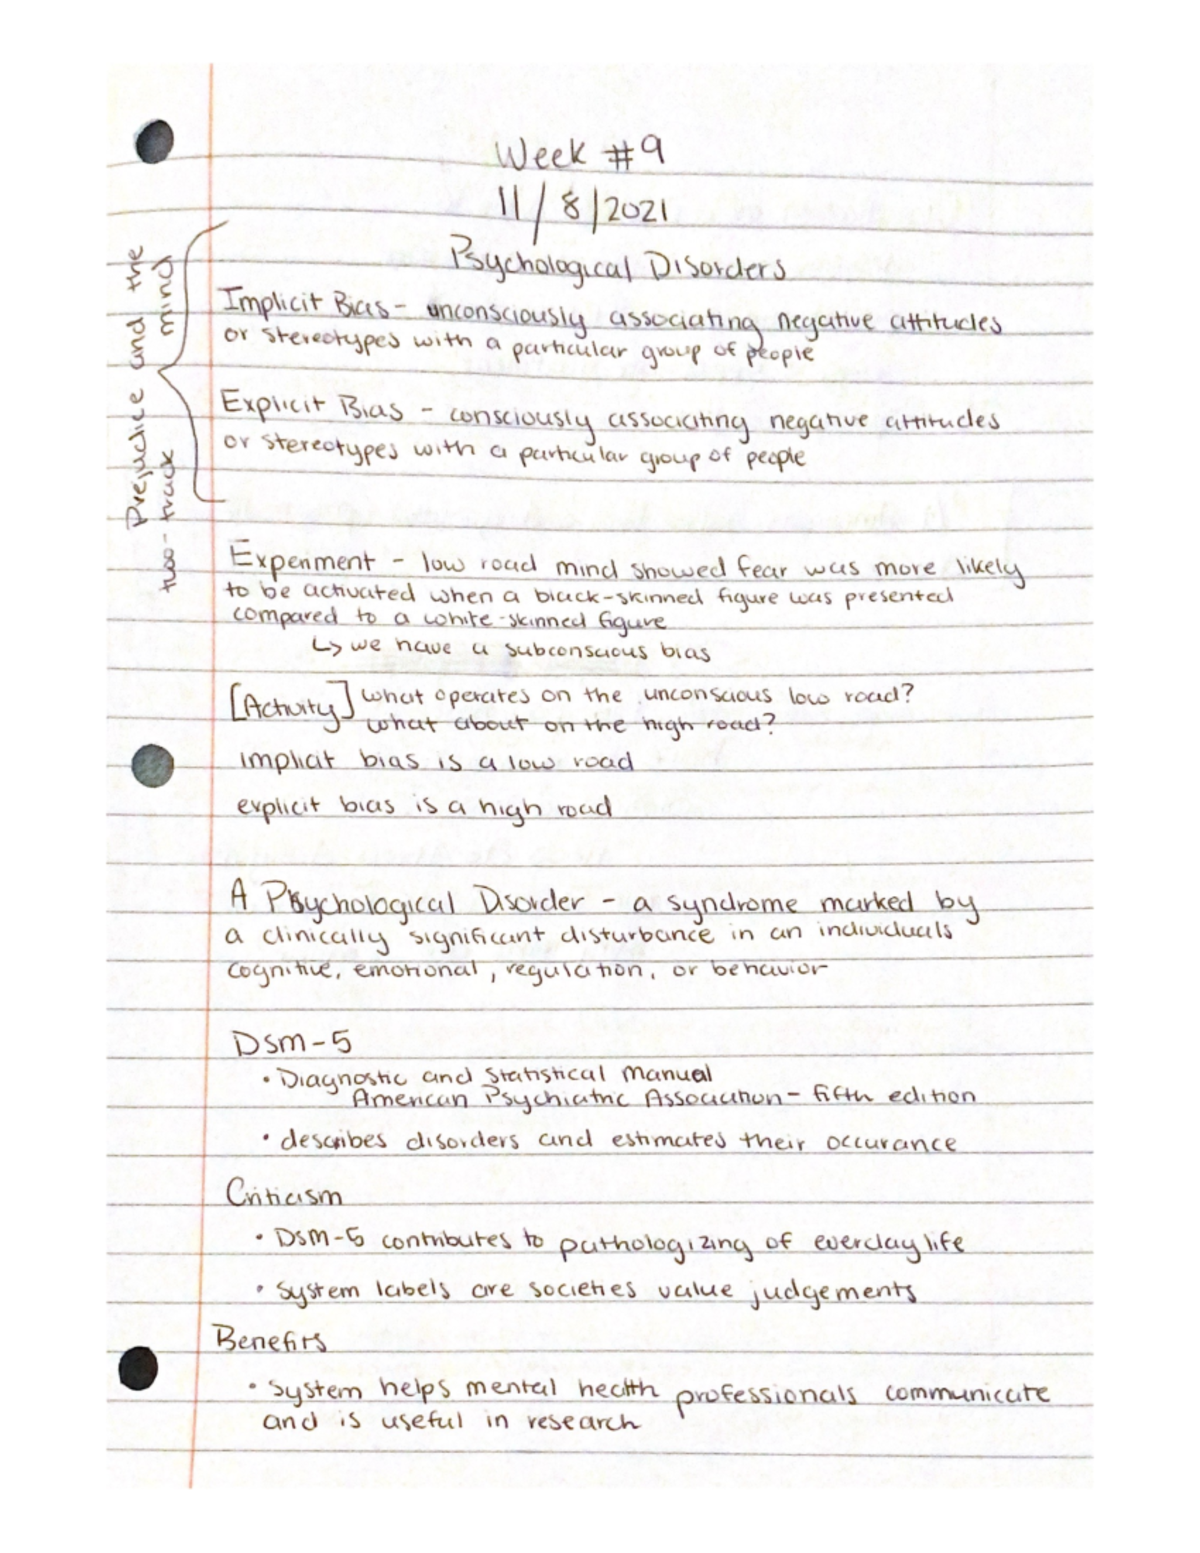 Week #9
11/8/2021
Psychological Disorders
Prejudice and the
two-track mind
Implicit Bias - unconsciously associating negative attitudes
or stereotypes with a particular group of people
Explicit Bias - consciously associating negative attitudes
or stereotypes with a particular group of people
Experiment - low road mind showed fear was more likely
to be activated when a black-skinned figure was presented
compared to a white-skinned figure
↳ we have a subconscious bias
[Activity] what operates on the unconscious low road?
what about on the high road?
implicit bias is a low road
explicit bias is a high road
A Psychological Disorder - a syndrome marked by
a clinically significant disturbance in an individuals
cognitive, emotional, regulation, or behavior
Dsm-5
• Diagnostic and Statistical Manual
American Psychiatric Association - fifth edition
• describes disorders and estimates their occurance
Criticism
• Dsm-5 contributes to pathologizing of everyday life
• System labels are societies value judgements
Benefits
• System helps mental health professionals communicate
and is useful in research